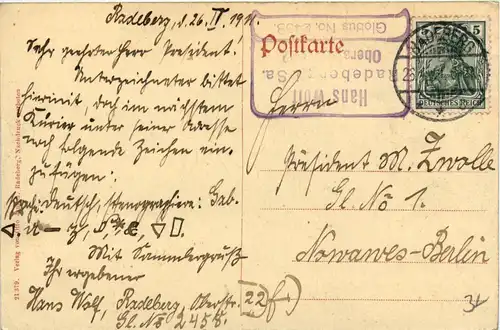 Radeberg, d. 26. IV 1911.
Sehr geehrter Herr Präsident!
Unterzeichneter bittet
hiermit, doch im nächstem
Kurier unter seiner Adresse
noch folgende Zeichen ein-
zufügen:
Sprach. deutsch, stenographiere: Gab.
Mit Sammlergruß
Ihr ergebener
Hans Wolf, Radeberg, Oberstr.
Gl. No 2458.
22
f
Postkarte
Hans Wolf
Radeberg i. Sa.
Globus No. 2458
RADEBERG
5
DEUTSCHES REICH
Herrn
Präsident M. Zwolle
Gl. No 1.
Nowawes-Berlin
21379 Verlag von
Radeberg,